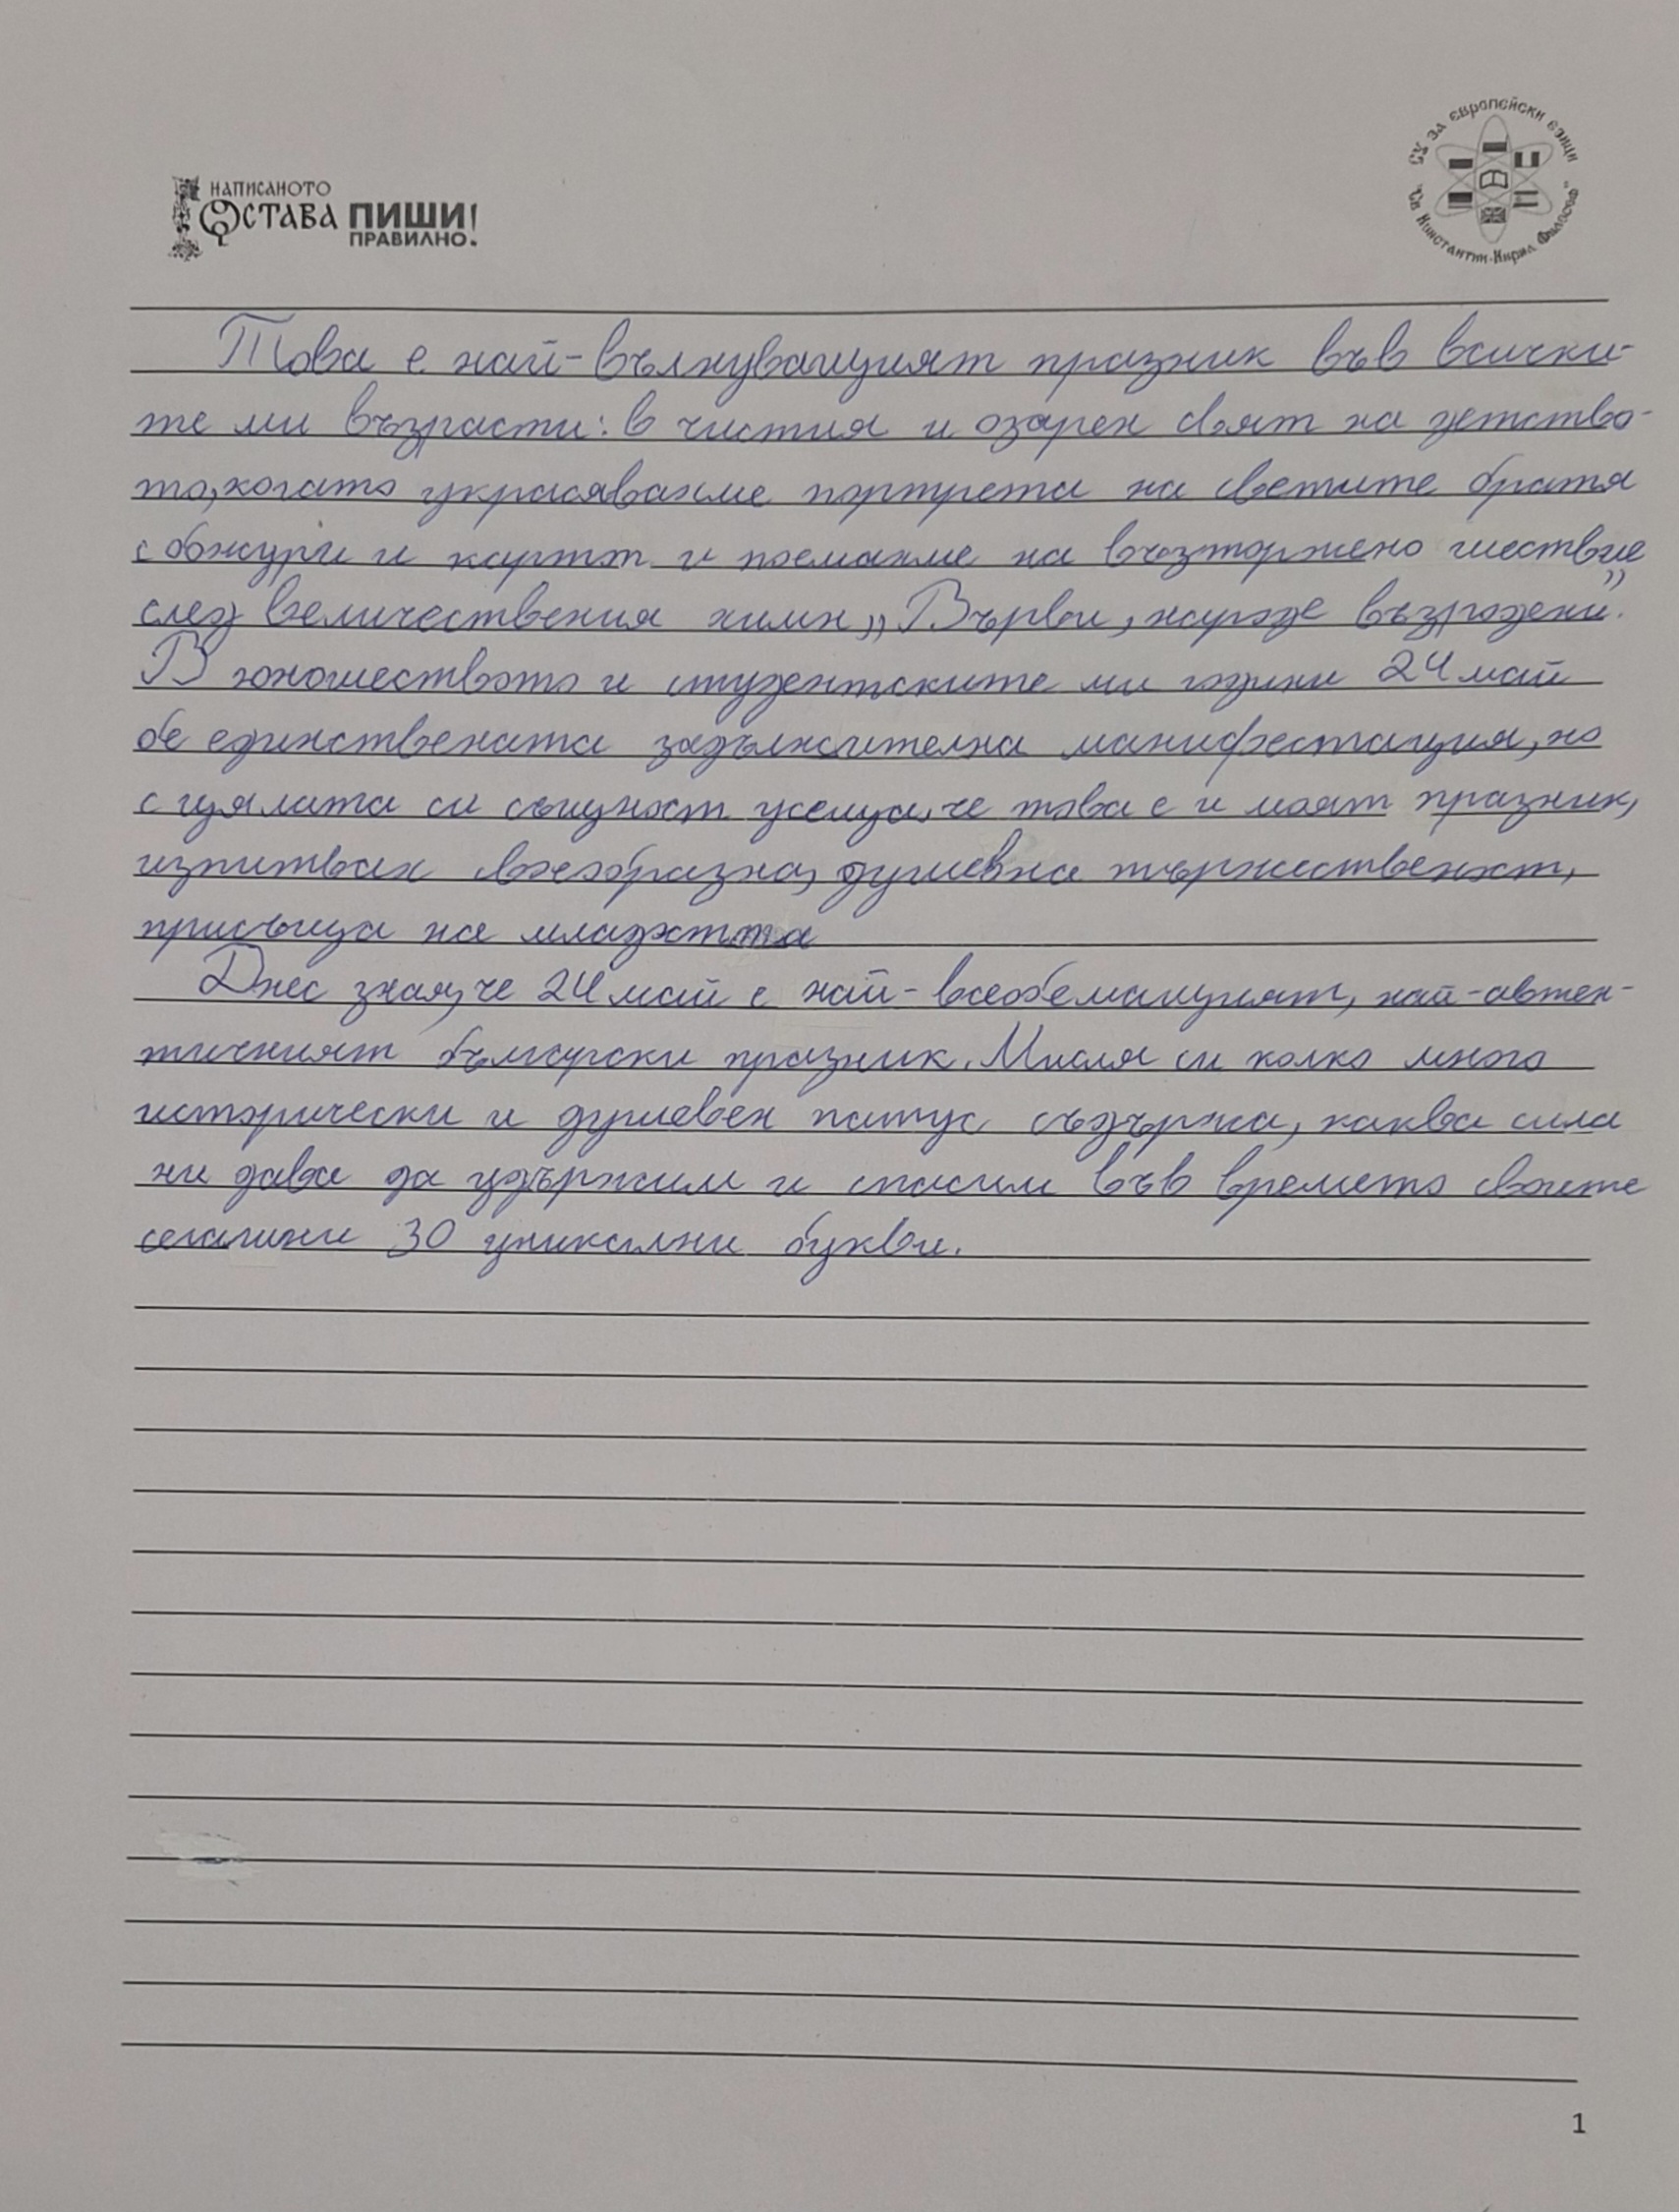 НАПИСАНОТО
ОСТАВА ПИШИ
ПРАВИЛНО!
СУ ЗА ЕВРОПЕЙСКИ ЕЗИЦИ
"Св. Константин-Кирил Философ"
Това е най-вълнуващият празник във всички-
те ми възрасти: в чистия и озарен свят на детство-
то, когато украсявахме портрета на светите братя
с божури и поемахме на възторжено шествие
след величествения химн „Върви, народе възродени".
В юношеството и студентските ми години 24 май
бе единствената задължителна манифестация, но
с цялата си същност усещах, че това е и моят празник,
изпитвах своеобразна, душевна тържественост,
присъща на младостта
Днес зная, че 24 май е най-всеобемащият, най-автен-
тичният български празник. Мисля си колко много
исторически и душевен патус съдържа, каква сила
ни дава да удържим и спасим във времето своите
сегашни 30 уникални букви.
1